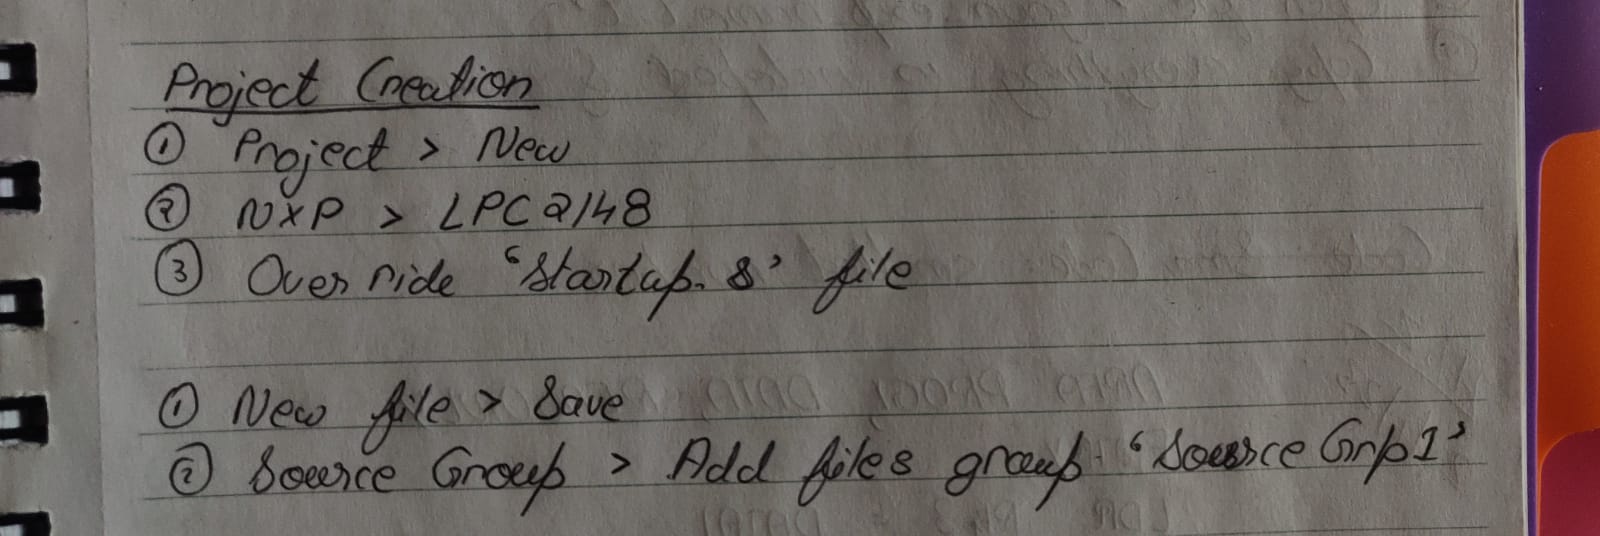 Project Creation
① Project > New
② NXP > LPC2148
③ Over ride 'Startup.s' file
① New file > Save
② Source Group > Add files group 'Source Grp1'